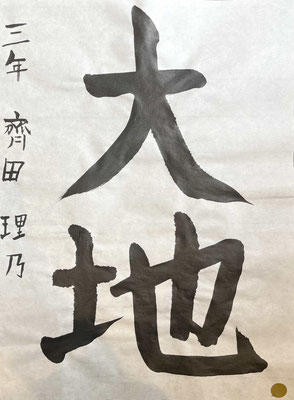 大地
三年 齊田 理乃